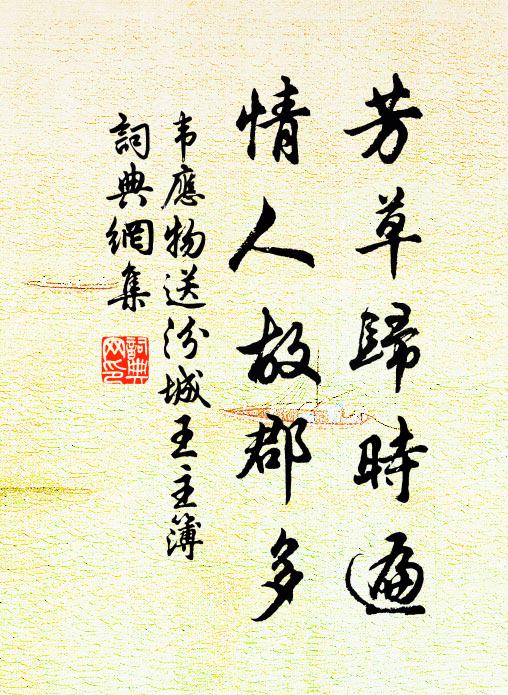 芳草歸時遍
情人故郡多
韦應物送汾城王主簿
詞典網集
詞典网印